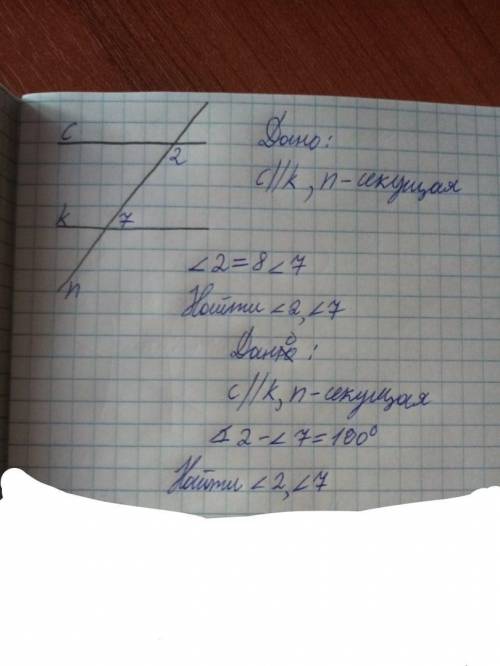 c
2
k
7
n
Дано:
c||k, n-секущая
∠2=8∠7
Найти ∠2,∠7
Дано:
c||k, n-секущая
∠2-∠7=100°
Найти ∠2,∠7